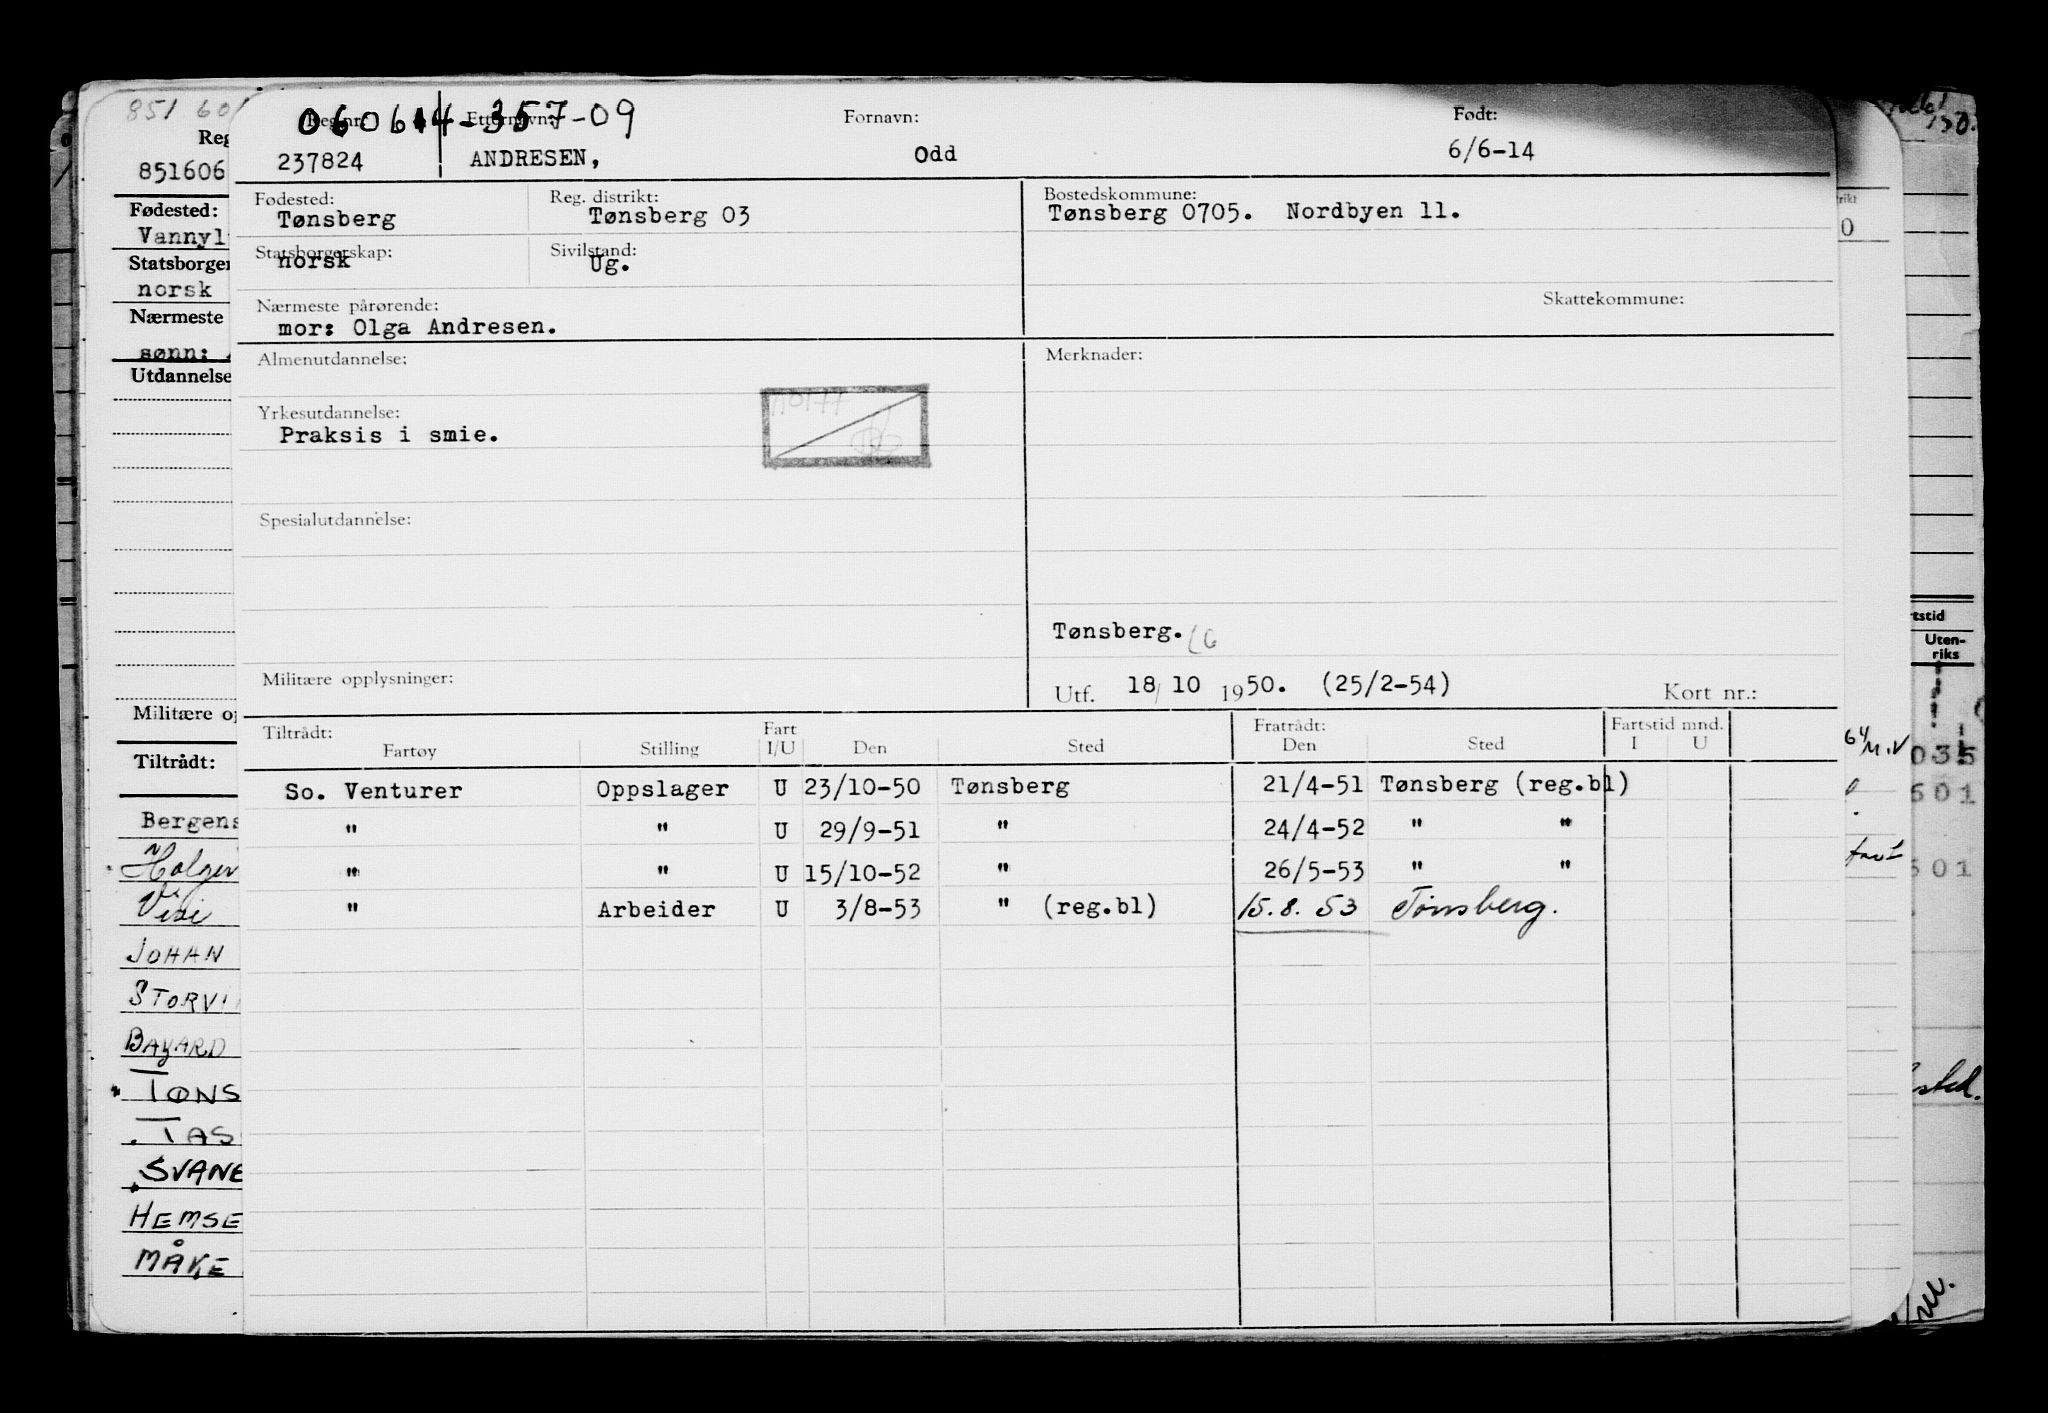 060614-357-09
Reg. nr.: Etternavn: Fornavn: Født:
237824 ANDRESEN, Odd 6/6-14
Fødested: Reg. distrikt: Bostedskommune:
Tønsberg Tønsberg 03 Tønsberg 0705. Nordbyen 11.
Statsborgerskap: Sivilstand:
norsk Ug.
Nærmeste pårørende: Skattekommune:
mor: Olga Andresen.
Almenutdannelse: Merknader:
Yrkesutdannelse:
Praksis i smie.
Spesialutdannelse:
Tønsberg.
Militære opplysninger: Utf. 18/10 1950. (25/2-54) Kort nr.:
Tiltrådt: Fart Fratrådt: Fartstid mnd.
Fartøy Stilling I/U Den Sted Den Sted I U
So. Venturer Oppslager U 23/10-50 Tønsberg 21/4-51 Tønsberg (reg.bl)
" " U 29/9-51 " 24/4-52 " "
" " U 15/10-52 " 26/5-53 " "
" Arbeider U 3/8-53 " (reg.bl) 15.8.53 Tønsberg.
851606
Fødested:
norsk
Nærmeste
sønn:
Utdannelse
Tiltrådt:
Holger
JOHAN
BAYARD
HEMSE
MÅKE
Uten-
riks